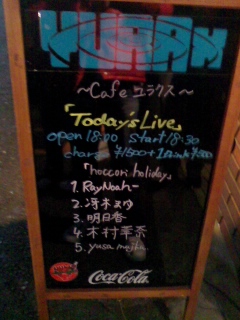 YURAX
〜Cafe ユラクス〜
「Today's Live」
open 18:00 start 18:30
charge ¥1500+1Drink ¥500
「hoccori holiday」
1. RayNoah
2. 冴木まゆ
3. 明日香
4. 木村華奈
5. yusa
Coca-Cola